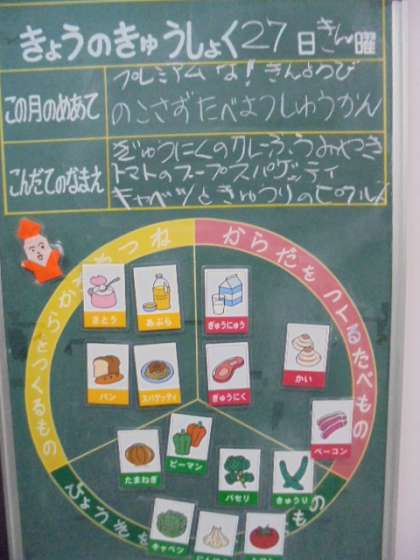 きょうのきゅうしょく27日きん曜
この月のめあて
プレミアムな！きんようび
のこさずたべようしゅうかん
こんだてのなまえ
ぎゅうにくのカレーふうみやき
トマトのスープスパゲッティ
キャベツときゅうりのピクルス
ねつ
からだをつくるたべもの
さとう
あぶら
ぎゅうにゅう
かい
パン
スパゲッティ
ぎゅうにく
ベーコン
たまねぎ
ピーマン
パセリ
きゅうり
キャベツ